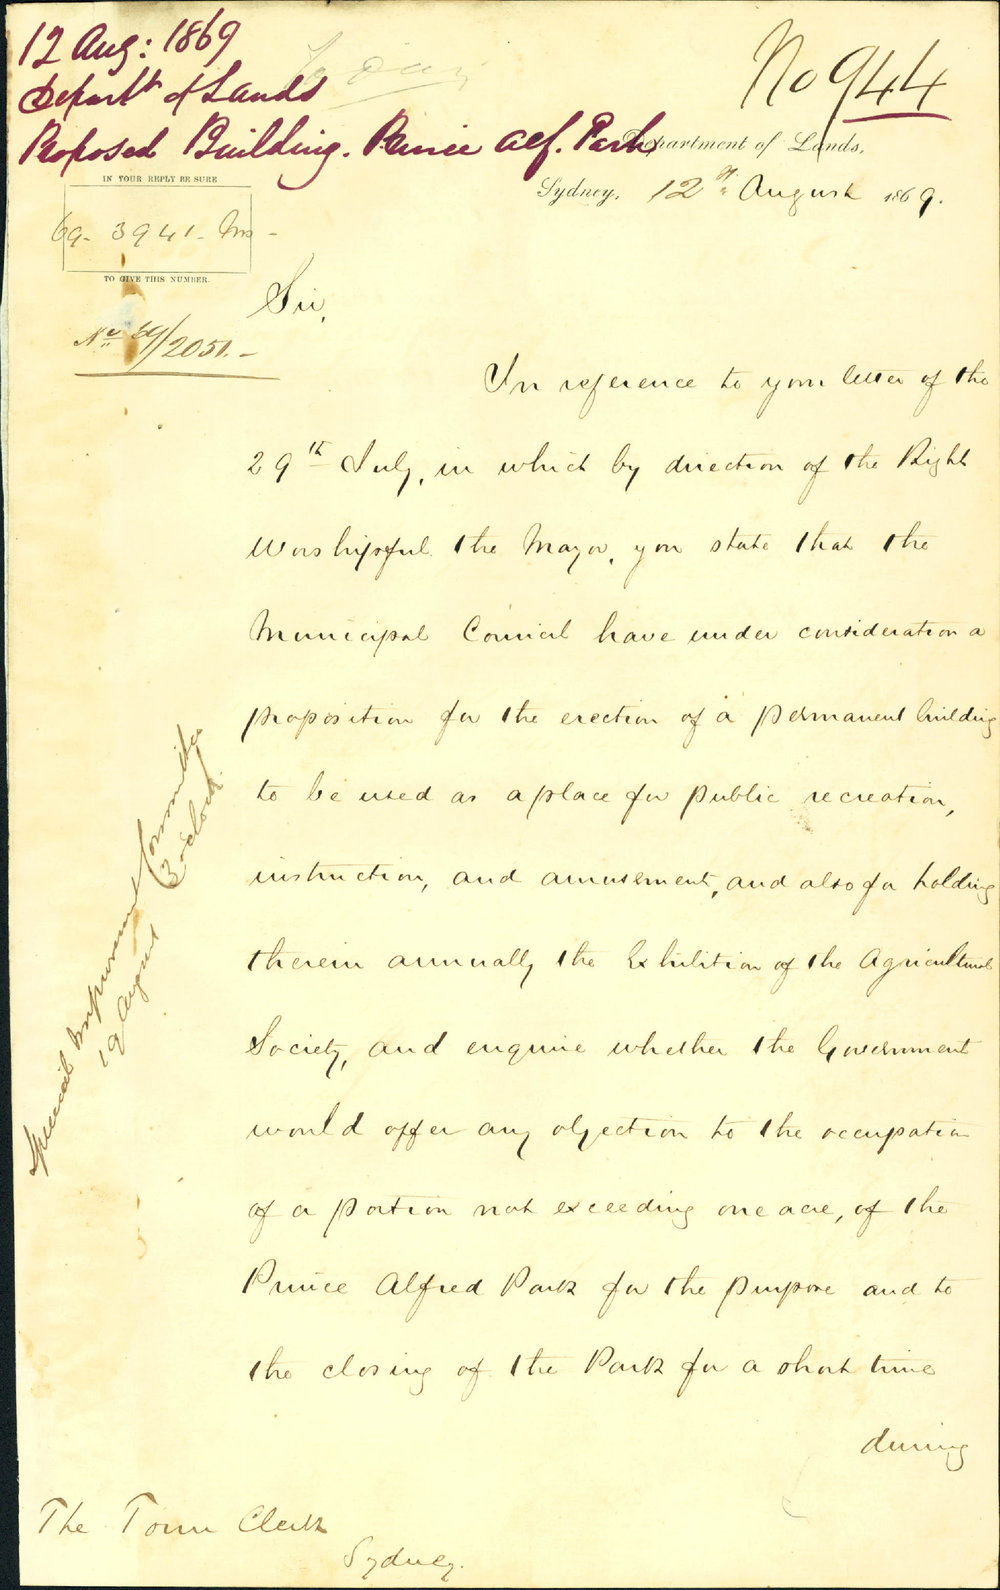 12 Aug: 1869
Departt of Lands
Proposed Building. Prince Alf. Park
No 944
Department of Lands,
Sydney, 12th August 1869.
IN YOUR REPLY BE SURE
69-3941-Ms-
TO GIVE THIS NUMBER.
No 69/2051.-
Sir,
In reference to your letter of the
29th July, in which by direction of the Right
Worshipful the Mayor, you state that the
Municipal Council have under consideration a
proposition for the erection of a permanent building
to be used as a place for public recreation,
instruction, and amusement, and also for holding
therein annually the Exhibition of the Agricultural
Society, and enquire whether the Government
would offer any objection to the occupation
of a portion not exceeding one acre, of the
Prince Alfred Park for the purpose and to
the closing of the Park for a short time
during
Special Improvement Committee
19 August 3 o'clock
The Town Clerk
Sydney.